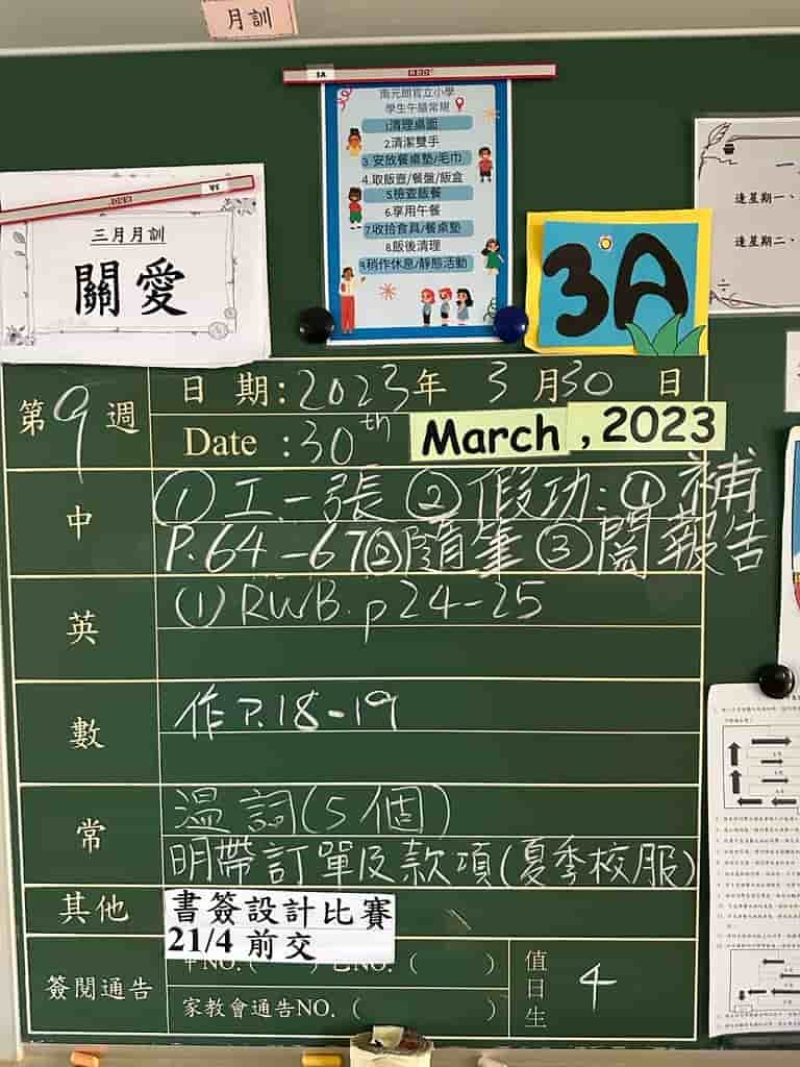 月訓
3A
南元朗官立小學
學生午膳常規
1.清理桌面
2.清潔雙手
3.安放餐桌墊/毛巾
4.取飯壺/餐盤/飯盒
5.檢查飯餐
6.享用午餐
7.收拾食具/餐桌墊
8.飯後清理
9.稍作休息/靜態活動
三月月訓
關愛
3A
逢星期一、
逢星期二、
第9週
日期:2023年 3月30日
Date :30th March , 2023
中
①工一張 ②假功:①補
P.64-67②隨筆 ③閱報告
英
(1) RWB. p24-25
數
作P.18-19
常
溫詞(5個)
明帶訂單及款項(夏季校服)
其他
書簽設計比賽
21/4 前交
簽閱通告
NO.( ) NO.( )
家教會通告NO.( )
值日生
4